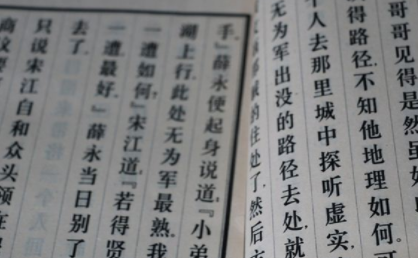 哥哥见得是然虽如
得路径不知他地理如何可
个人去那里城中探听虚实
无为军出没的路径去处就
的住处了然后方
手』薛永便起身说道『小弟
湖上行此处无为军最熟我
一遭如何』宋江道『若得贤
一遭最好』薛永当日别了
去了
只说宋江自和众头领在
商议要